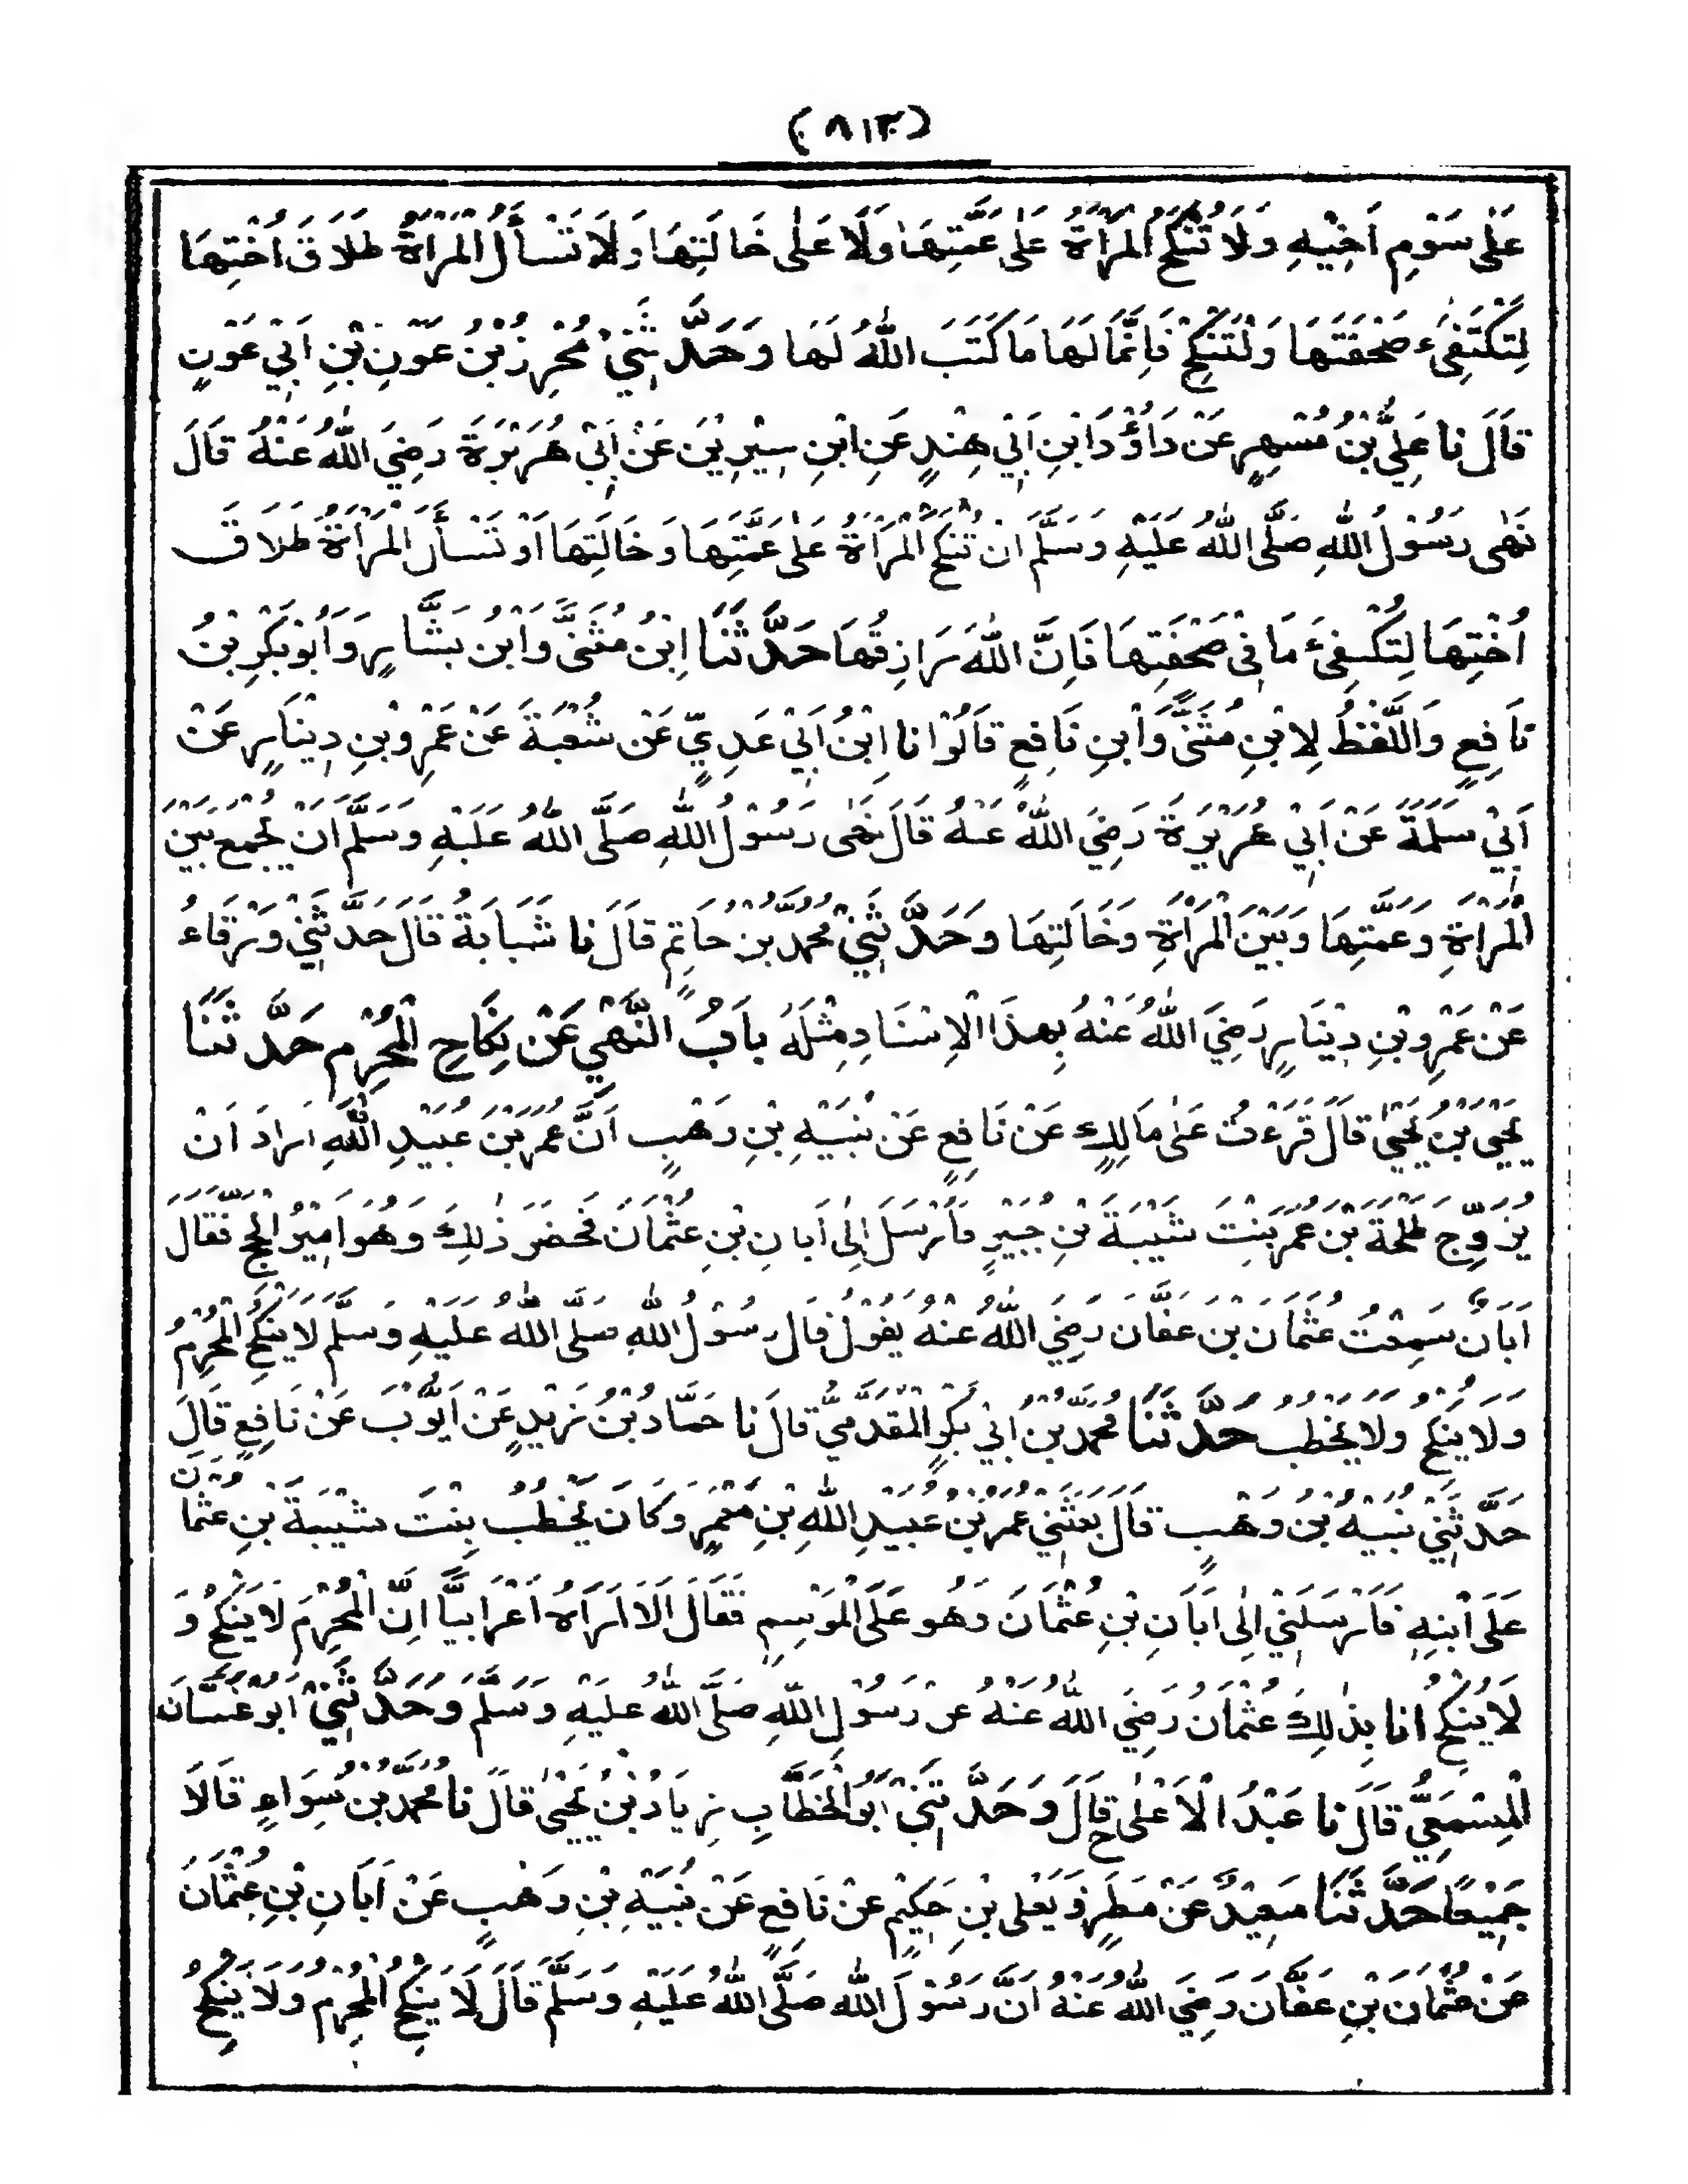 (٨١٣)
عَلٰى سَوْمِ اَخِيْهِ وَلَا تُنْكَحُ الْمَرْاَةُ عَلٰى عَمَّتِهَا وَلَا عَلٰى خَالَتِهَا وَلَا تَسْأَلُ الْمَرْاَةُ طَلَاقَ اُخْتِهَا
لِتَكْتَفِئَ صَحْفَتَهَا وَلْتَنْكِحْ فَاِنَّمَا لَهَا مَا كَتَبَ اللّٰهُ لَهَا وَحَدَّثَنِيْ مُحْرِزُ بْنُ عَوْنِ بْنِ اَبِيْ عَوْنٍ
قَالَ نا عَلِيُّ بْنُ مُسْهِرٍ عَنْ دَاوُٗدَ ابْنِ اَبِيْ هِنْدٍ عَنِ ابْنِ سِيْرِيْنَ عَنْ اَبِيْ هُرَيْرَةَ رَضِيَ اللّٰهُ عَنْهُ قَالَ
نَهٰى رَسُوْلُ اللّٰهِ صَلَّى اللّٰهُ عَلَيْهِ وَسَلَّمَ اَنْ تُنْكَحَ الْمَرْاَةُ عَلٰى عَمَّتِهَا وَخَالَتِهَا اَوْ تَسْأَلَ الْمَرْاَةُ طَلَاقَ
اُخْتِهَا لِتَكْتَفِئَ مَا فِيْ صَحْفَتِهَا فَاِنَّ اللّٰهَ رَازِقُهَا حَدَّثَنَا اِبْنُ مُثَنًّى وَابْنُ بَشَّارٍ وَاَبُوْ بَكْرِ بْنُ
نَافِعٍ وَاللَّفْظُ لِابْنِ مُثَنًّى وَابْنِ نَافِعٍ قَالُوْا نا اِبْنُ اَبِيْ عَدِيٍّ عَنْ شُعْبَةَ عَنْ عَمْرِو بْنِ دِيْنَارٍ عَنْ
اَبِيْ سَلَمَةَ عَنْ اَبِيْ هُرَيْرَةَ رَضِيَ اللّٰهُ عَنْهُ قَالَ نَهٰى رَسُوْلُ اللّٰهِ صَلَّى اللّٰهُ عَلَيْهِ وَسَلَّمَ اَنْ يُجْمَعَ بَيْنَ
الْمَرْاَةِ وَعَمَّتِهَا وَبَيْنَ الْمَرْاَةِ وَخَالَتِهَا وَحَدَّثَنِيْ مُحَمَّدُ بْنُ حَاتِمٍ قَالَ نا شَبَابَةُ قَالَ حَدَّثَنِيْ وَرْقَاءُ
عَنْ عَمْرِو بْنِ دِيْنَارٍ رَضِيَ اللّٰهُ عَنْهُ بِهٰذَا الْاِسْنَادِ مِثْلَهُ بَابُ النَّهْيِ عَنْ نِكَاحِ الْمُحْرِمِ حَدَّثَنَا
يَحْيَى بْنُ يَحْيٰى قَالَ قَرَءْتُ عَلٰى مَالِكٍ عَنْ نَافِعٍ عَنْ نُبَيْهِ بْنِ وَهْبٍ اَنَّ عُمَرَ بْنَ عُبَيْدِ اللّٰهِ اَرَادَ اَنْ
يُزَوِّجَ طَلْحَةَ بْنَ عُمَرَ بِنْتَ شَيْبَةَ بْنِ جُبَيْرٍ فَاَرْسَلَ اِلٰى اَبَانِ بْنِ عُثْمَانَ فَحَضَرَ ذٰلِكَ وَهُوَ اَمِيْرُ الْحَجِّ فَقَالَ
اَبَانُ سَمِعْتُ عُثْمَانَ بْنَ عَفَّانَ رَضِيَ اللّٰهُ عَنْهُ يَقُوْلُ قَالَ رَسُوْلُ اللّٰهِ صَلَّى اللّٰهُ عَلَيْهِ وَسَلَّمَ لَا يَنْكِحُ الْمُحْرِمُ
وَلَا يُنْكِحُ وَلَا يَخْطُبُ حَدَّثَنَا مُحَمَّدُ بْنُ اَبِيْ بَكْرٍ الْمُقَدَّمِيُّ قَالَ نا حَمَّادُ بْنُ زَيْدٍ عَنْ اَيُّوْبَ عَنْ نَافِعٍ قَالَ
حَدَّثَنِيْ نُبَيْهُ بْنُ وَهْبٍ قَالَ بَعَثَنِيْ عُمَرُ بْنُ عُبَيْدِ اللّٰهِ بْنِ مَعْمَرٍ وَكَانَ يَخْطُبُ بِنْتَ شَيْبَةَ بْنِ عُثْمَانَ
عَلَى ابْنِهٖ فَاَرْسَلَنِيْ اِلٰى اَبَانِ بْنِ عُثْمَانَ وَهُوَ عَلَى الْمَوْسِمِ فَقَالَ اَلَا اَرَاهُ اَعْرَابِيًّا اِنَّ الْمُحْرِمَ لَا يَنْكِحُ وَ
لَا يُنْكِحُ اَنَا بِذٰلِكَ عُثْمَانُ رَضِيَ اللّٰهُ عَنْهُ عَنْ رَسُوْلِ اللّٰهِ صَلَّى اللّٰهُ عَلَيْهِ وَسَلَّمَ وَحَدَّثَنِيْ اَبُوْ غَسَّانَ
الْمِسْمَعِيُّ قَالَ نا عَبْدُ الْاَعْلٰى ح قَالَ وَحَدَّثَنِيْ اَبُو الْخَطَّابِ زِيَادُ بْنُ يَحْيٰى قَالَ نا مُحَمَّدُ بْنُ سَوَاءٍ قَالَا
جَمِيْعًا حَدَّثَنَا سَعِيْدٌ عَنْ مَطَرٍ وَيَعْلَى بْنِ حَكِيْمٍ عَنْ نَافِعٍ عَنْ نُبَيْهِ بْنِ وَهْبٍ عَنْ اَبَانِ بْنِ عُثْمَانَ
عَنْ عُثْمَانَ بْنِ عَفَّانَ رَضِيَ اللّٰهُ عَنْهُ اَنَّ رَسُوْلَ اللّٰهِ صَلَّى اللّٰهُ عَلَيْهِ وَسَلَّمَ قَالَ لَا يَنْكِحُ الْمُحْرِمُ وَلَا يُنْكِحُ